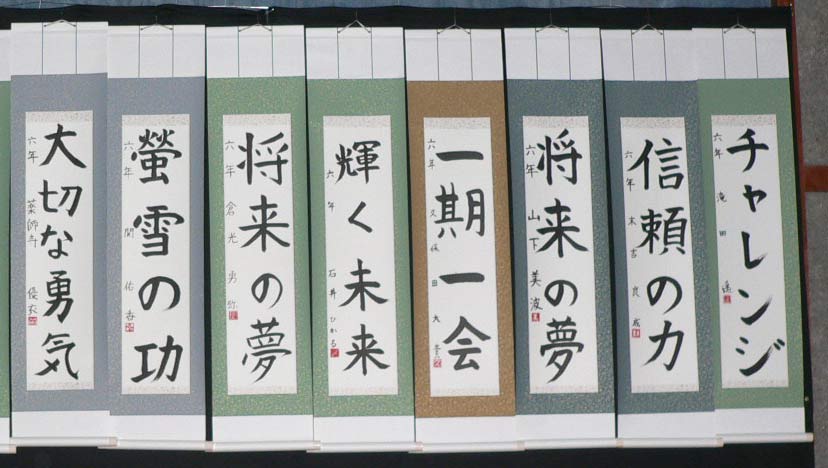 チャレンジ
六年 滝田
信頼の力
六年 末吉 良成
将来の夢
六年 山下 美波
一期一会
六年 久保田 大
輝く未来
六年 石井 ひかる
将来の夢
六年 倉光 勇弥
螢雪の功
六年 関 佑
大切な勇気
六年 薬師寺 優衣